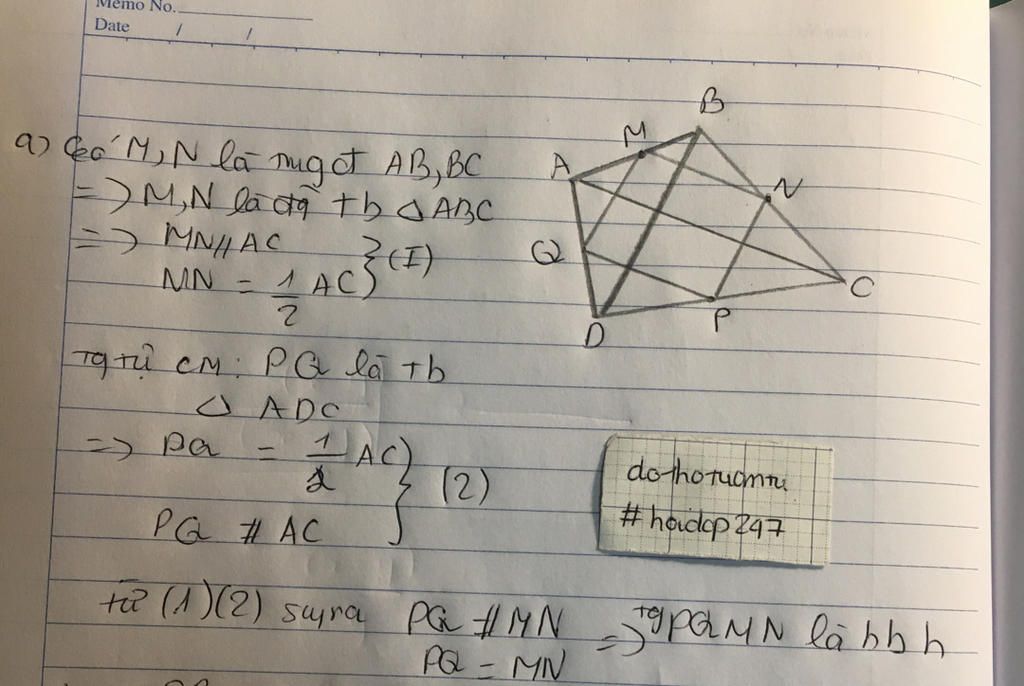 Memo No.
Date / /
a) Có M, N là trugđ AB, BC
=> M, N là đg tb △ ABC
=> MN // AC
MN = 1/2 AC } (I)
Tg tự CM: PQ là tb
△ ADC
=> PQ = 1/2 AC
PQ // AC } (2)
từ (1)(2) suy ra PQ // MN
PQ = MN
=> tg PQMN là hbh
A
M
B
N
Q
C
D
P
dothotuantu
#hoidap247